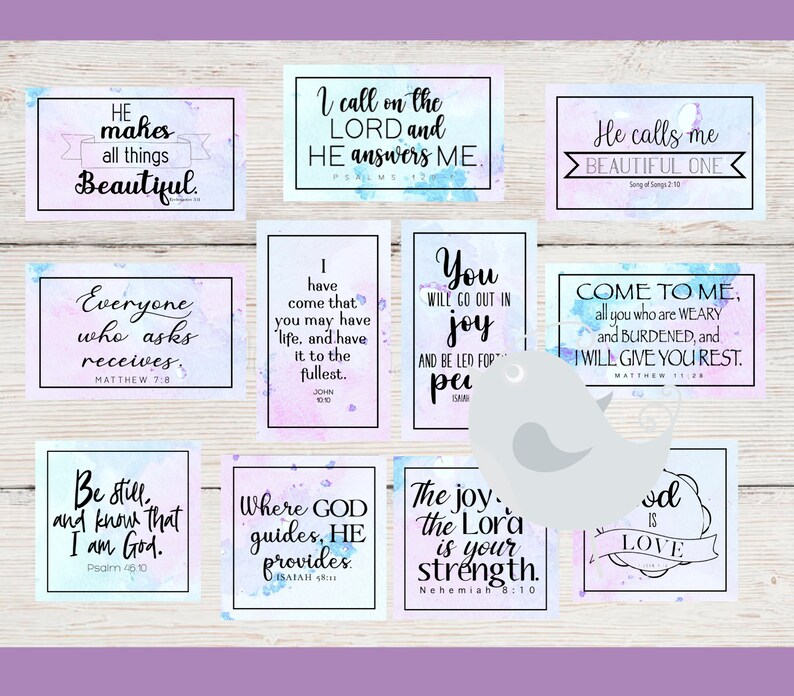 HE
makes
all things
Beautiful.
Ecclesiastes 3:11
I call on the
LORD and
HE answers ME.
PSALMS 120
He calls me
BEAUTIFUL ONE
Song of Songs 2:10
Everyone
who asks
receives.
MATTHEW 7:8
I
have
come that
you may have
life, and have
it to the
fullest.
JOHN
10:10
You
WILL GO OUT IN
joy
AND BE LED FORTH
ISAIAH
COME TO ME,
all you who are WEARY
and BURDENED, and
I WILL GIVE YOU REST.
MATTHEW 11:28
Be still,
and know that
I am God.
Psalm 46:10
Where GOD
guides, HE
provides.
ISAIAH 58:11
The joy
the Lord
is your
strength.
Nehemiah 8:10
IS
LOVE